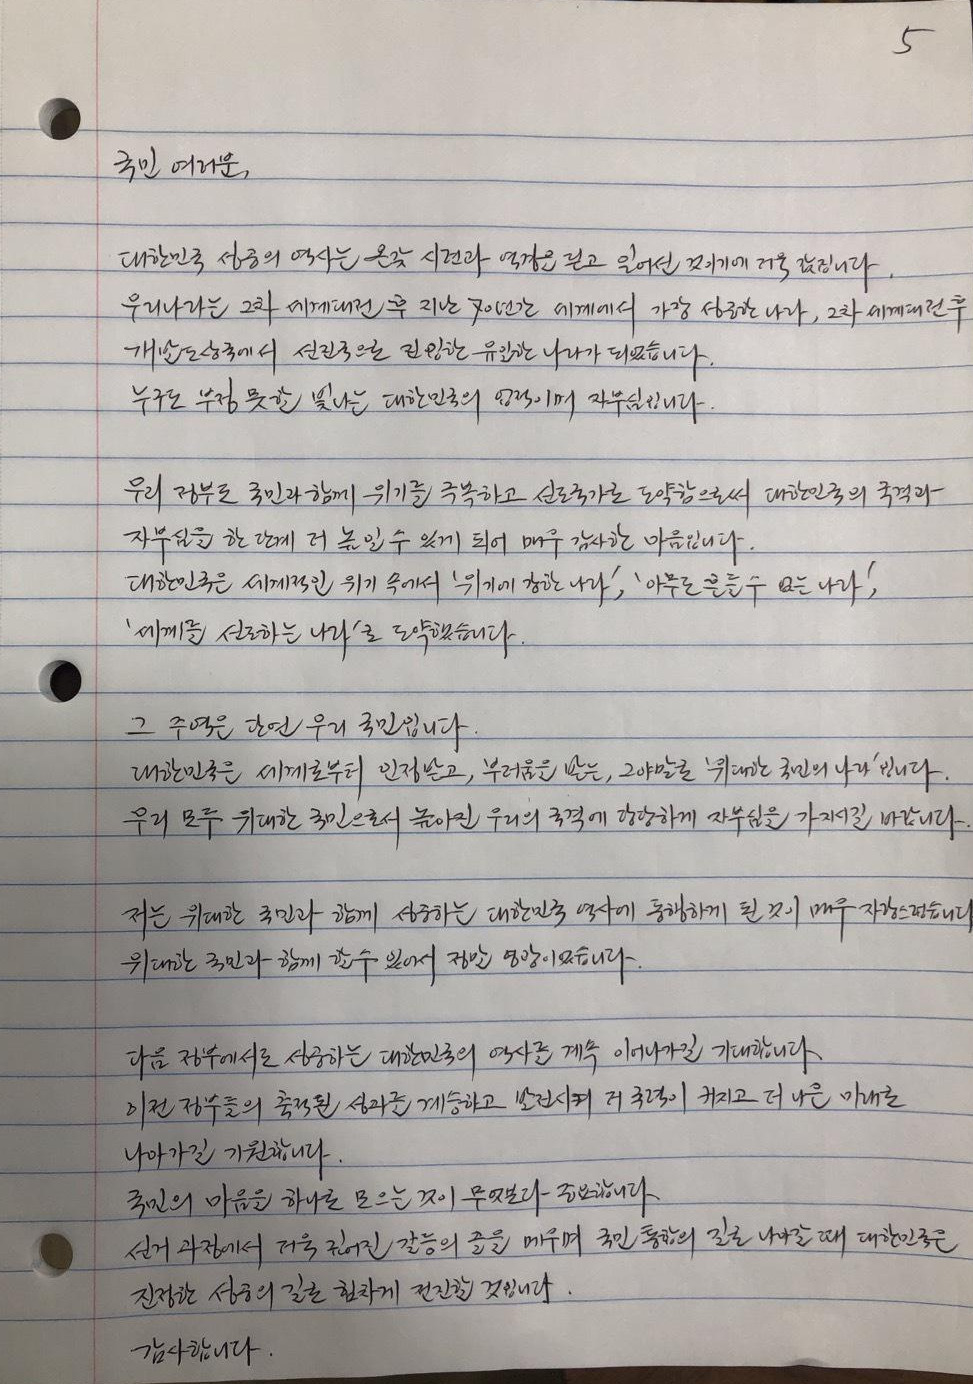 5
국민 여러분,
대한민국 성공의 역사는 온갖 시련과 역경을 딛고 일어선 것이기에 더욱 값집니다.
우리나라는 2차 세계대전 후 지난 70년간 세계에서 가장 성공한 나라, 2차 세계대전 후
개발도상국에서 선진국으로 진입한 유일한 나라가 되었습니다.
누구도 부정 못할 빛나는 대한민국의 업적이며 자부심입니다.
우리 정부도 국민과 함께 위기를 극복하고 선도국가로 도약함으로써 대한민국의 국격과
자부심을 한 단계 더 높일 수 있게 되어 매우 감사한 마음입니다.
대한민국은 세계적인 위기 속에서 '위기에 강한 나라', '아무도 흔들 수 없는 나라',
'세계를 선도하는 나라'로 도약했습니다.
그 주역은 단연 우리 국민입니다.
대한민국은 세계로부터 인정받고, 부러움을 받는, 그야말로 '위대한 국민의 나라'입니다.
우리 모두 위대한 국민으로서 높아진 우리의 국격에 당당하게 자부심을 가지시길 바랍니다.
저는 위대한 국민과 함께 성공하는 대한민국 역사에 동행하게 된 것이 매우 자랑스럽습니다
위대한 국민과 함께 할 수 있어서 정말 영광이었습니다.
다음 정부에서도 성공하는 대한민국의 역사를 계속 이어나가길 기대합니다.
이전 정부들의 축적된 성과를 계승하고 발전시켜 더 국력이 커지고 더 나은 미래로
나아가길 기원합니다.
국민의 마음을 하나로 모으는 것이 무엇보다 중요합니다.
선거 과정에서 더욱 깊어진 갈등의 골을 메우며 국민 통합의 길로 나아갈 때 대한민국은
진정한 성공의 길로 힘차게 전진할 것입니다.
감사합니다.